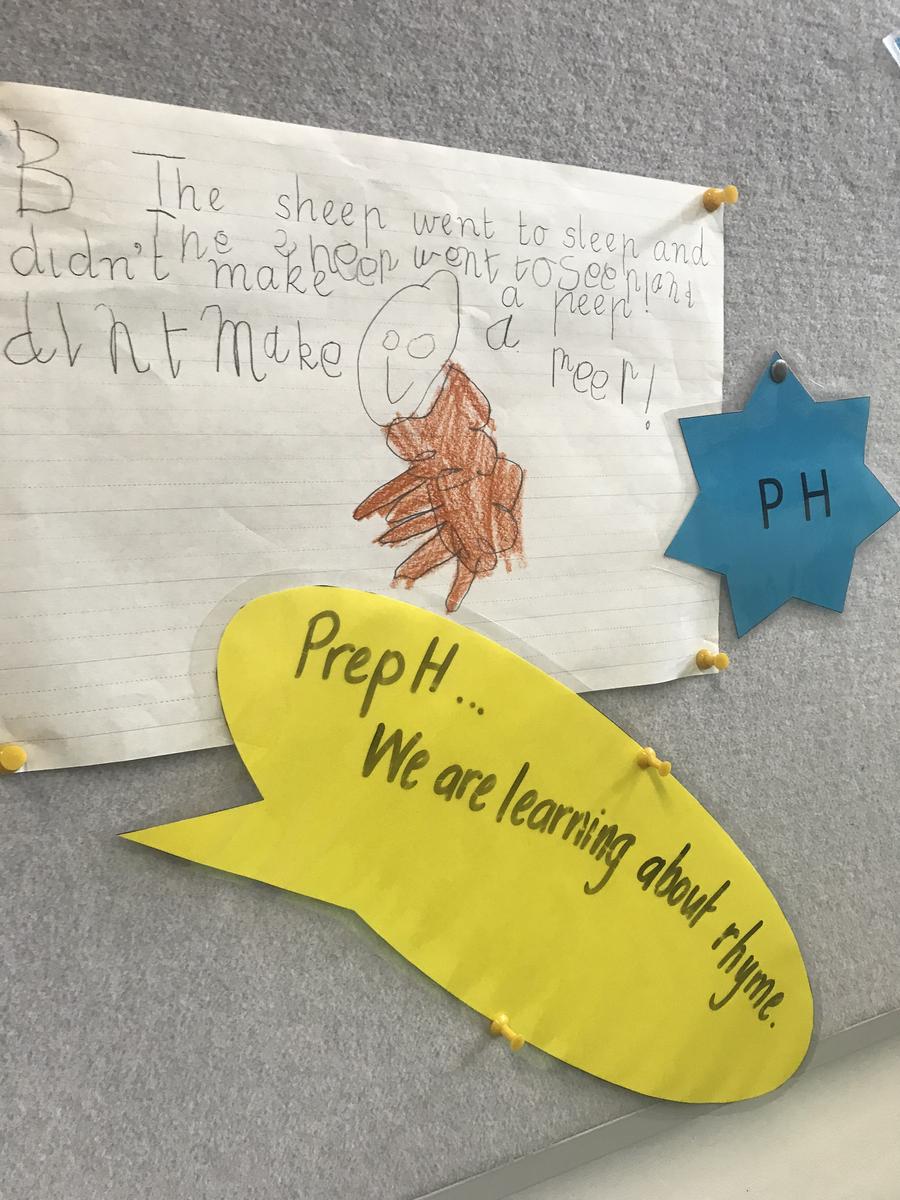 B The sheep went to sleep and
The sheep went to seep and
didn't make a peep!
didnt make a peep!
PH
Prep H...
We are learning about rhyme.